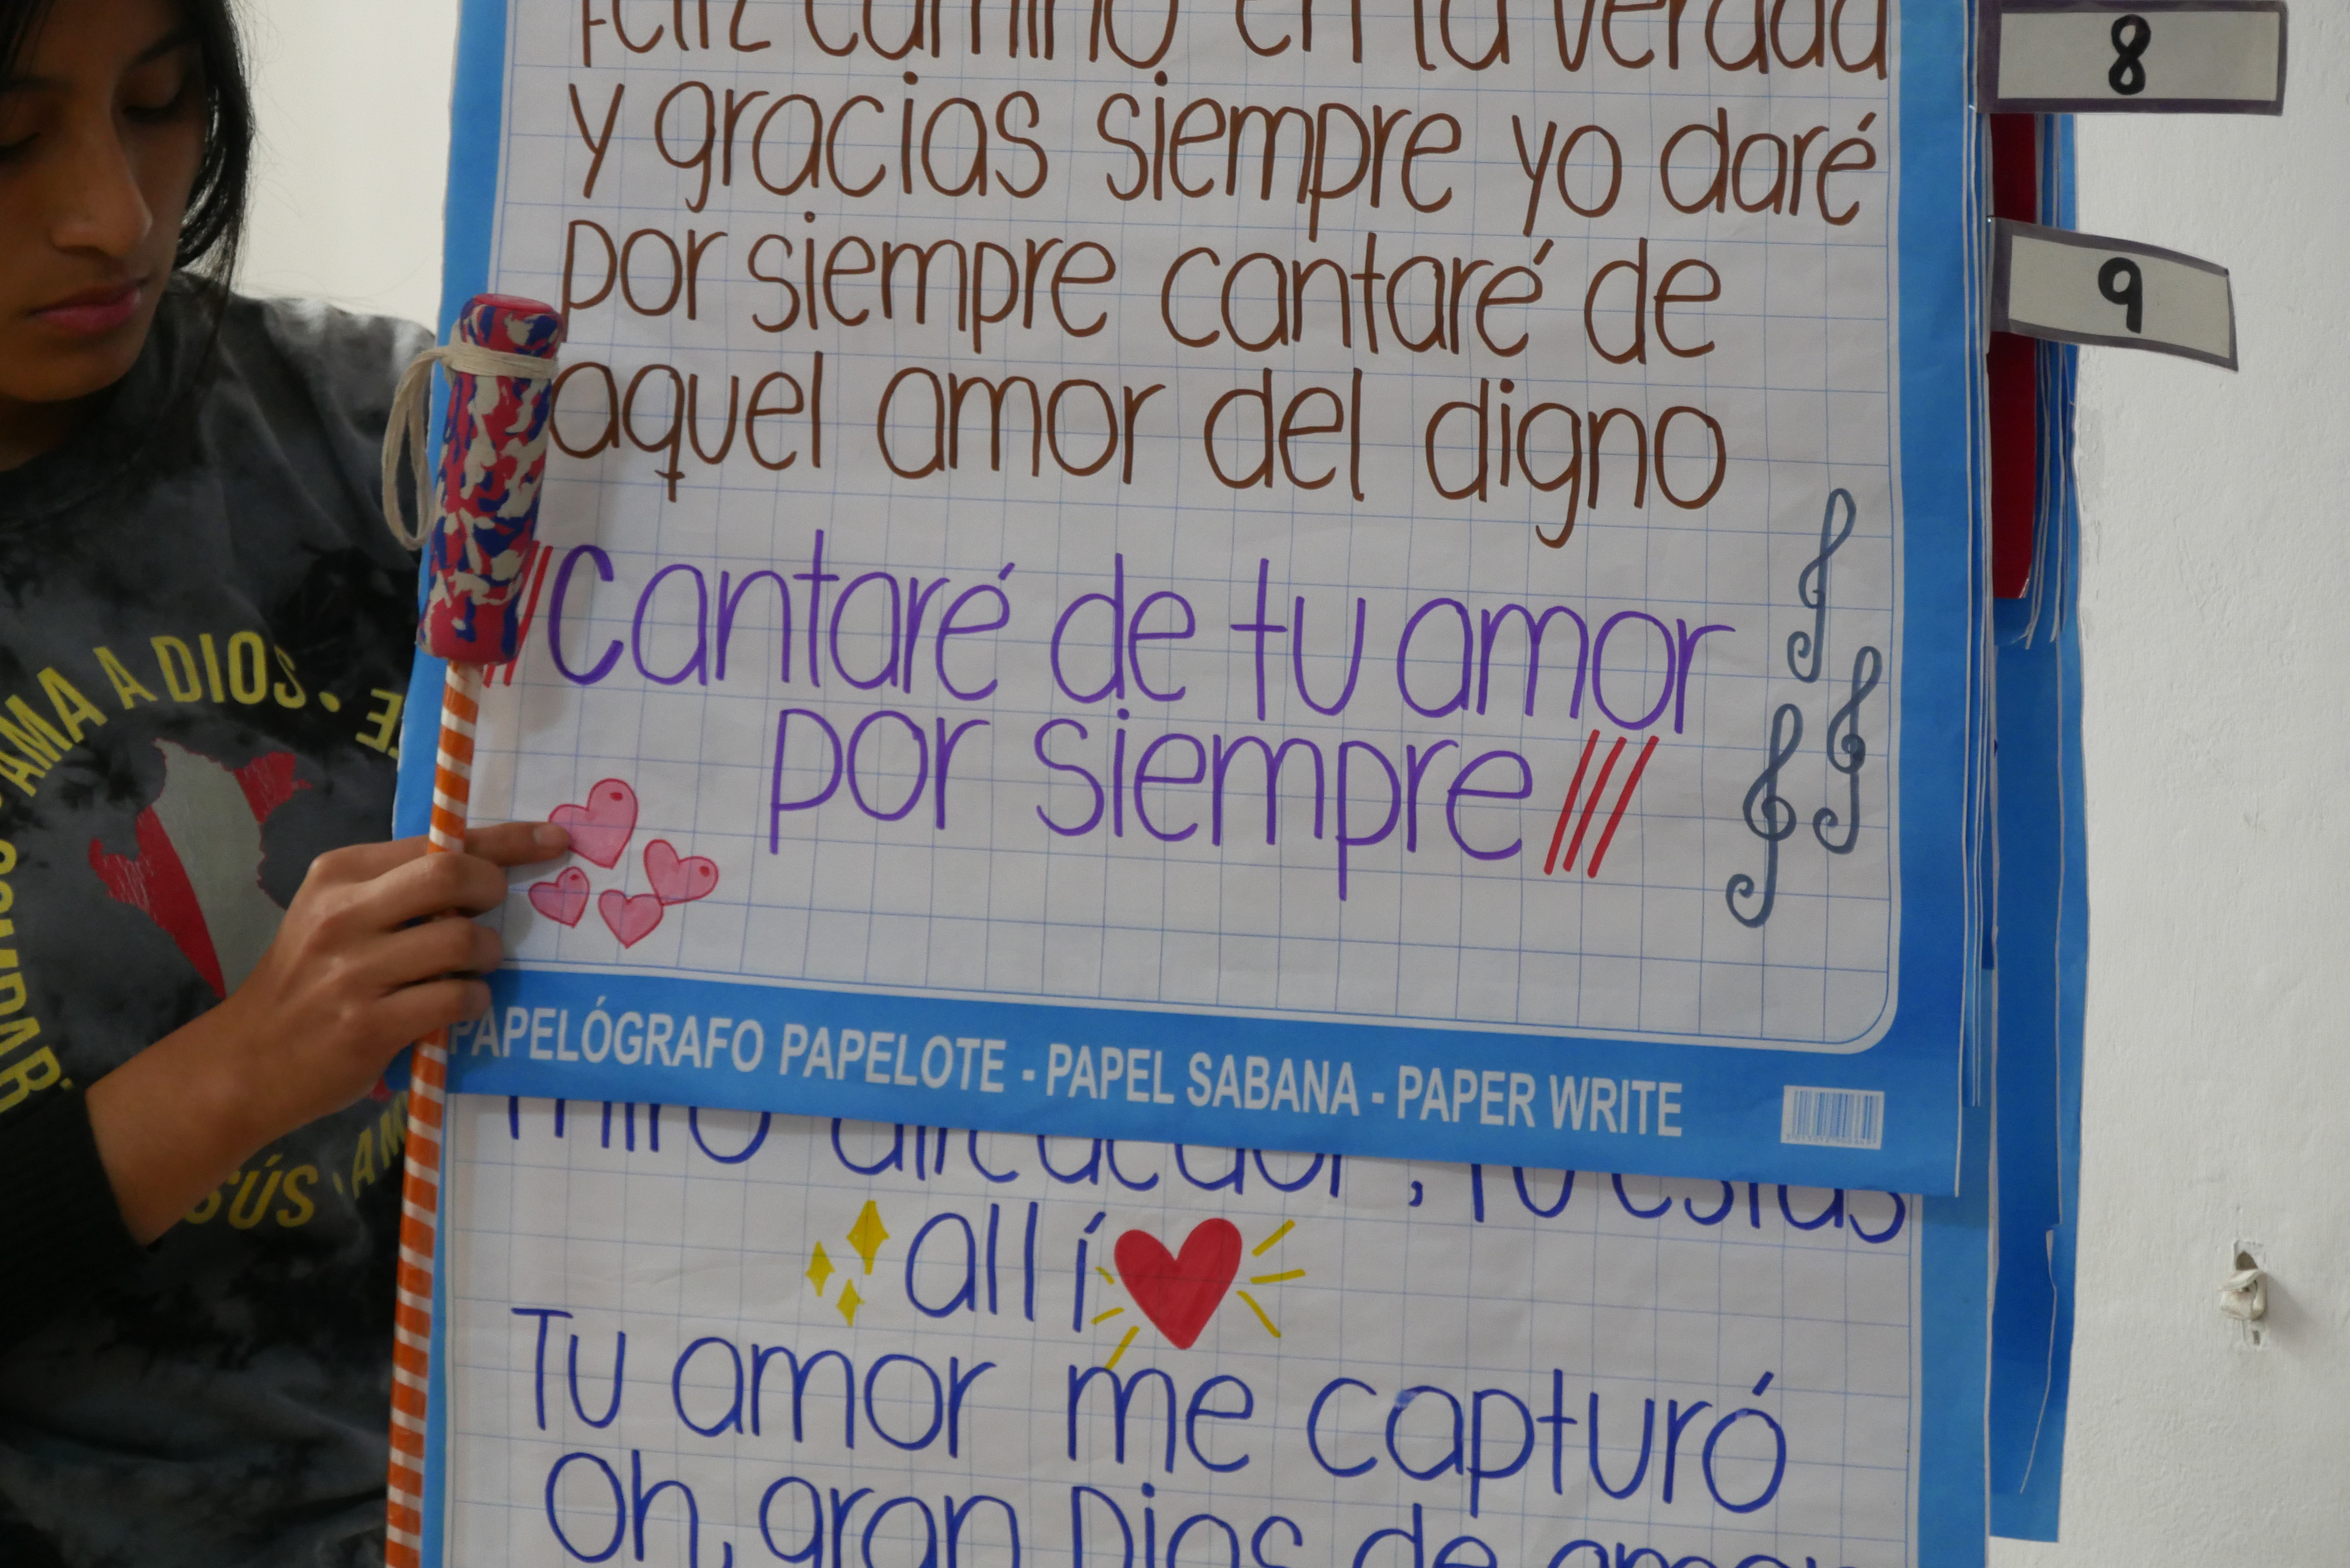 Feliz camino en la verdad
y gracias siempre yo daré
por siempre cantaré de
aquel amor del digno
///Cantaré de tu amor
por siempre///
PAPELÓGRAFO PAPELOTE - PAPEL SABANA - PAPER WRITE
miro alrededor, Tú estás
allí
Tu amor me capturó
Oh, gran Dios de amor
8
9
AMA A DIOS •